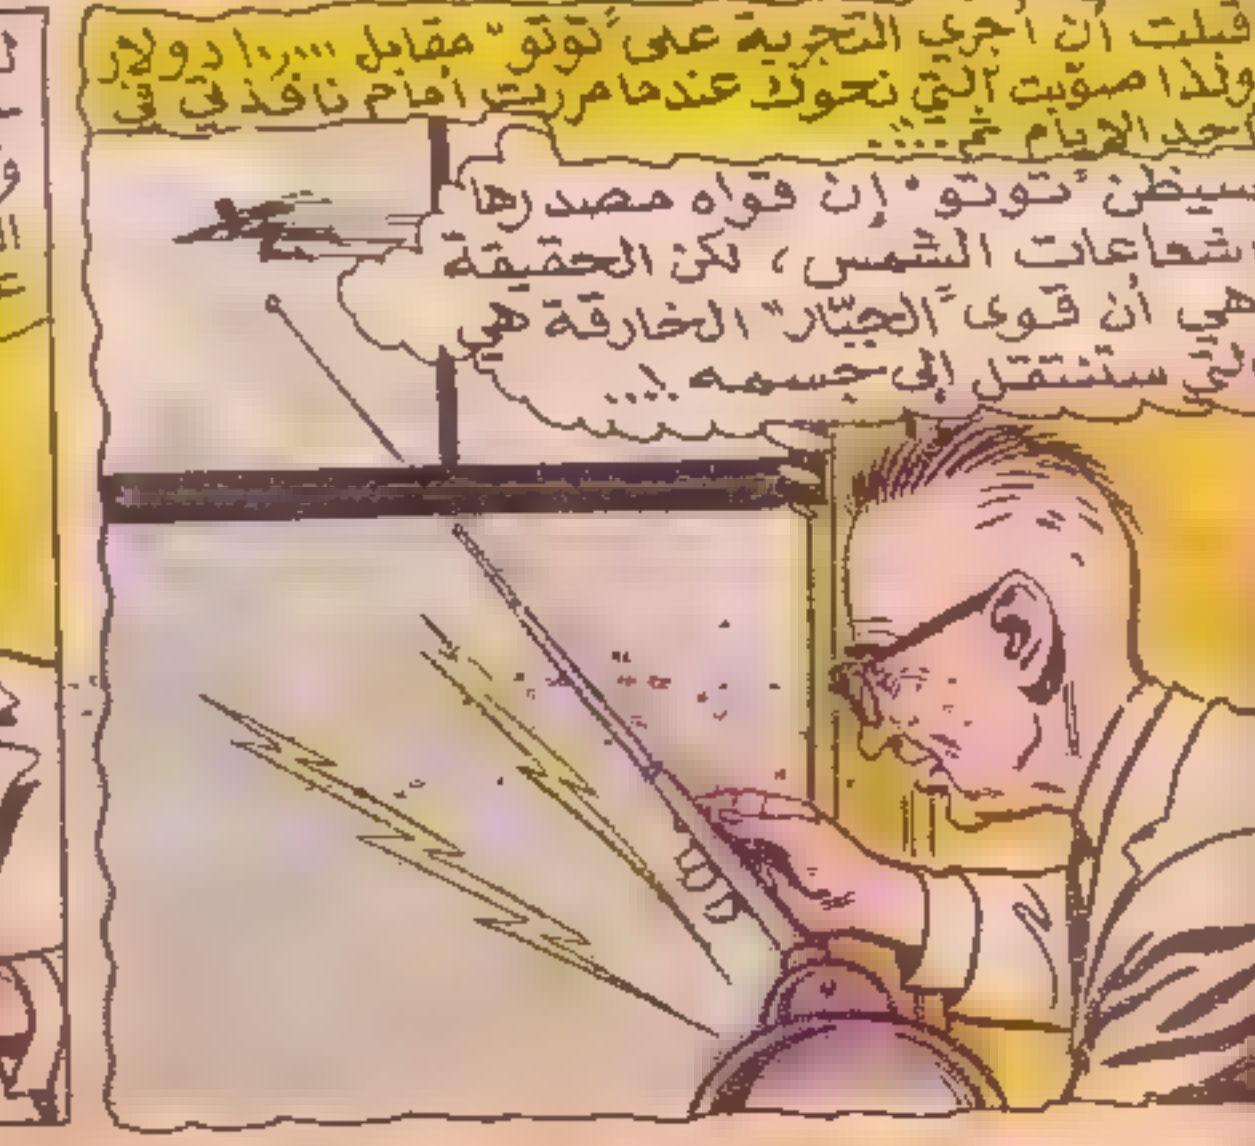 قبلت أن أجري التجربة على "توتو" مقابل ١٠,٠٠٠ دولار
ولذا صوّبت آلتي نحوك عندما مررت أمام نافذتي في
أحد الايام ثم.....
سيظن "توتو" إن قواه مصدرها
اشعاعات الشمس، لكن الحقيقة
هي أن قوى "الجبّار" الخارقة هي
التي ستنتقل إلى جسمه ....!